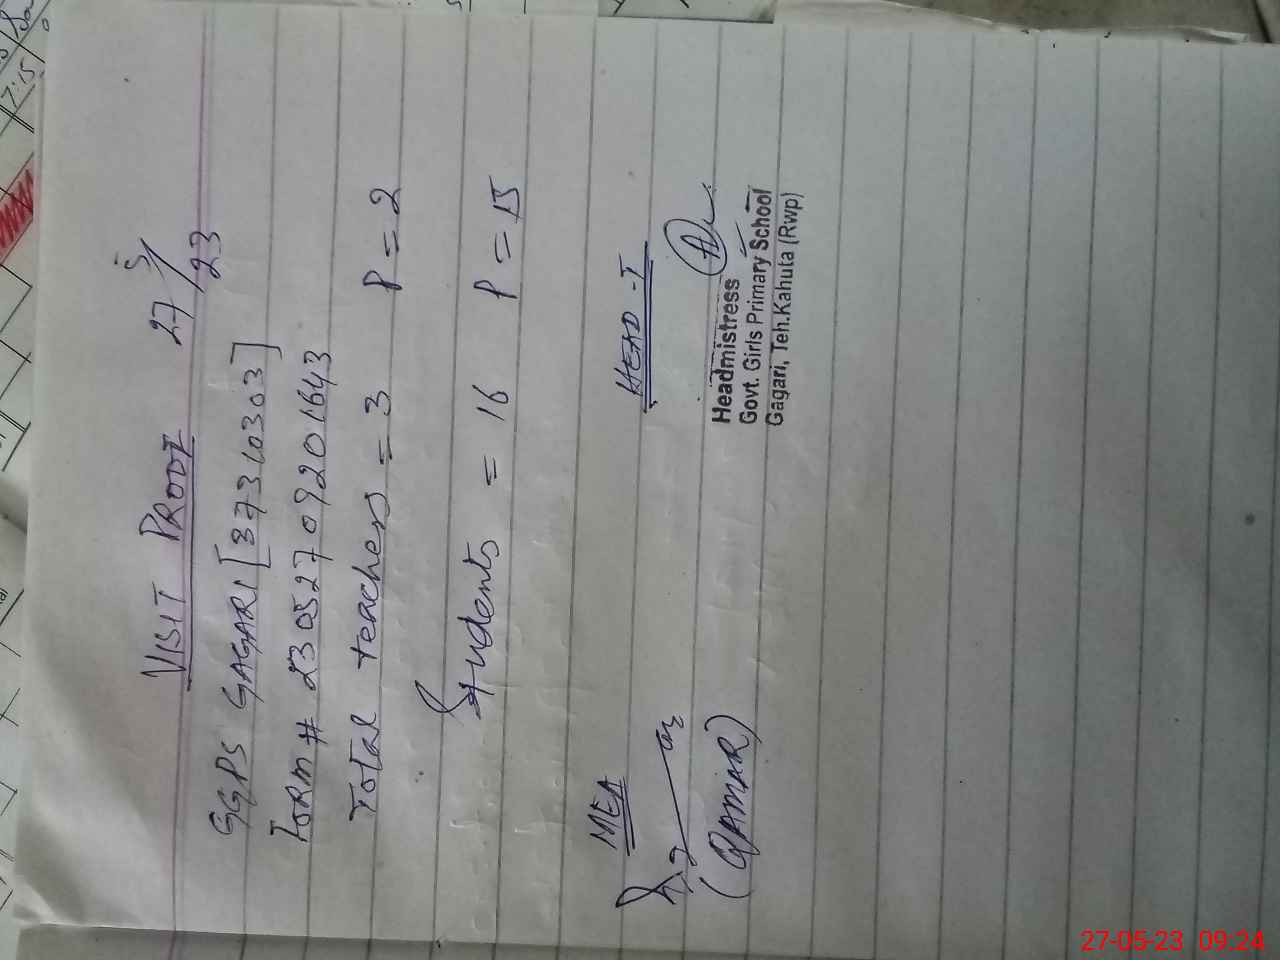 VISIT PROOF 27/5/23
GGPS GAGARI [37310303]
FORM # 23052709201643
Total teachers = 3 P = 2
Students = 16 P = 15
MEA HEAD-T
(QAMAR)
Headmistress
Govt. Girls Primary School
Gagari, Teh.Kahuta (Rwp)
7:15
27-05-23 09:24